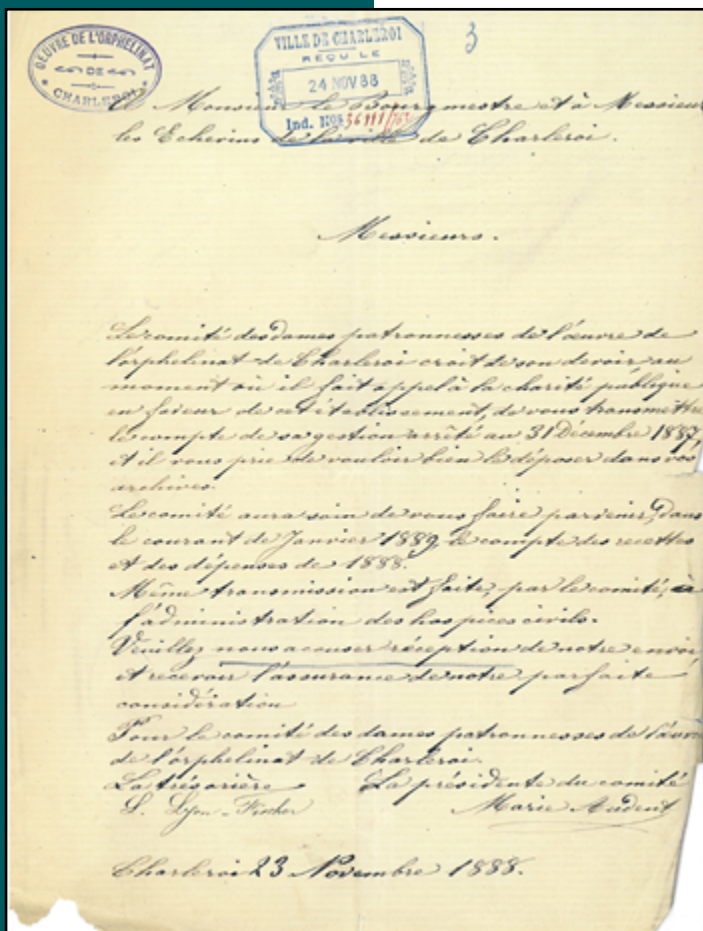 OEUVRE DE L'ORPHELINAT
DE
CHARLEROI
VILLE DE CHARLEROI
REÇU LE
24 NOV 88
Ind. Nos
3
A Monsieur le Bourgmestre et à Messieurs
les Echevins de la ville de Charleroi.
Messieurs.
Le comité des dames patronnesses de l'œuvre de
l'orphelinat de Charleroi croit de son devoir au
moment où il fait appel à la charité publique
en faveur de cet établissement, de vous transmettre
le compte de sa gestion arrêté au 31 Décembre 1887,
et il vous prie de vouloir bien le déposer dans vos
archives.
Le comité aura soin de vous faire parvenir, dans
le courant de Janvier 1889, le compte des recettes
et des dépenses de 1888.
Même transmission est faite, par le comité, à
l'administration des hospices civils.
Veuillez nous accuser réception de notre envoi
et recevoir l'assurance de notre parfaite
considération
Pour le comité des dames patronnesses de l'œuvre
de l'orphelinat de Charleroi.
La trésorière La présidente du comité
L. Marie Audent
Charleroi 23 Novembre 1888.